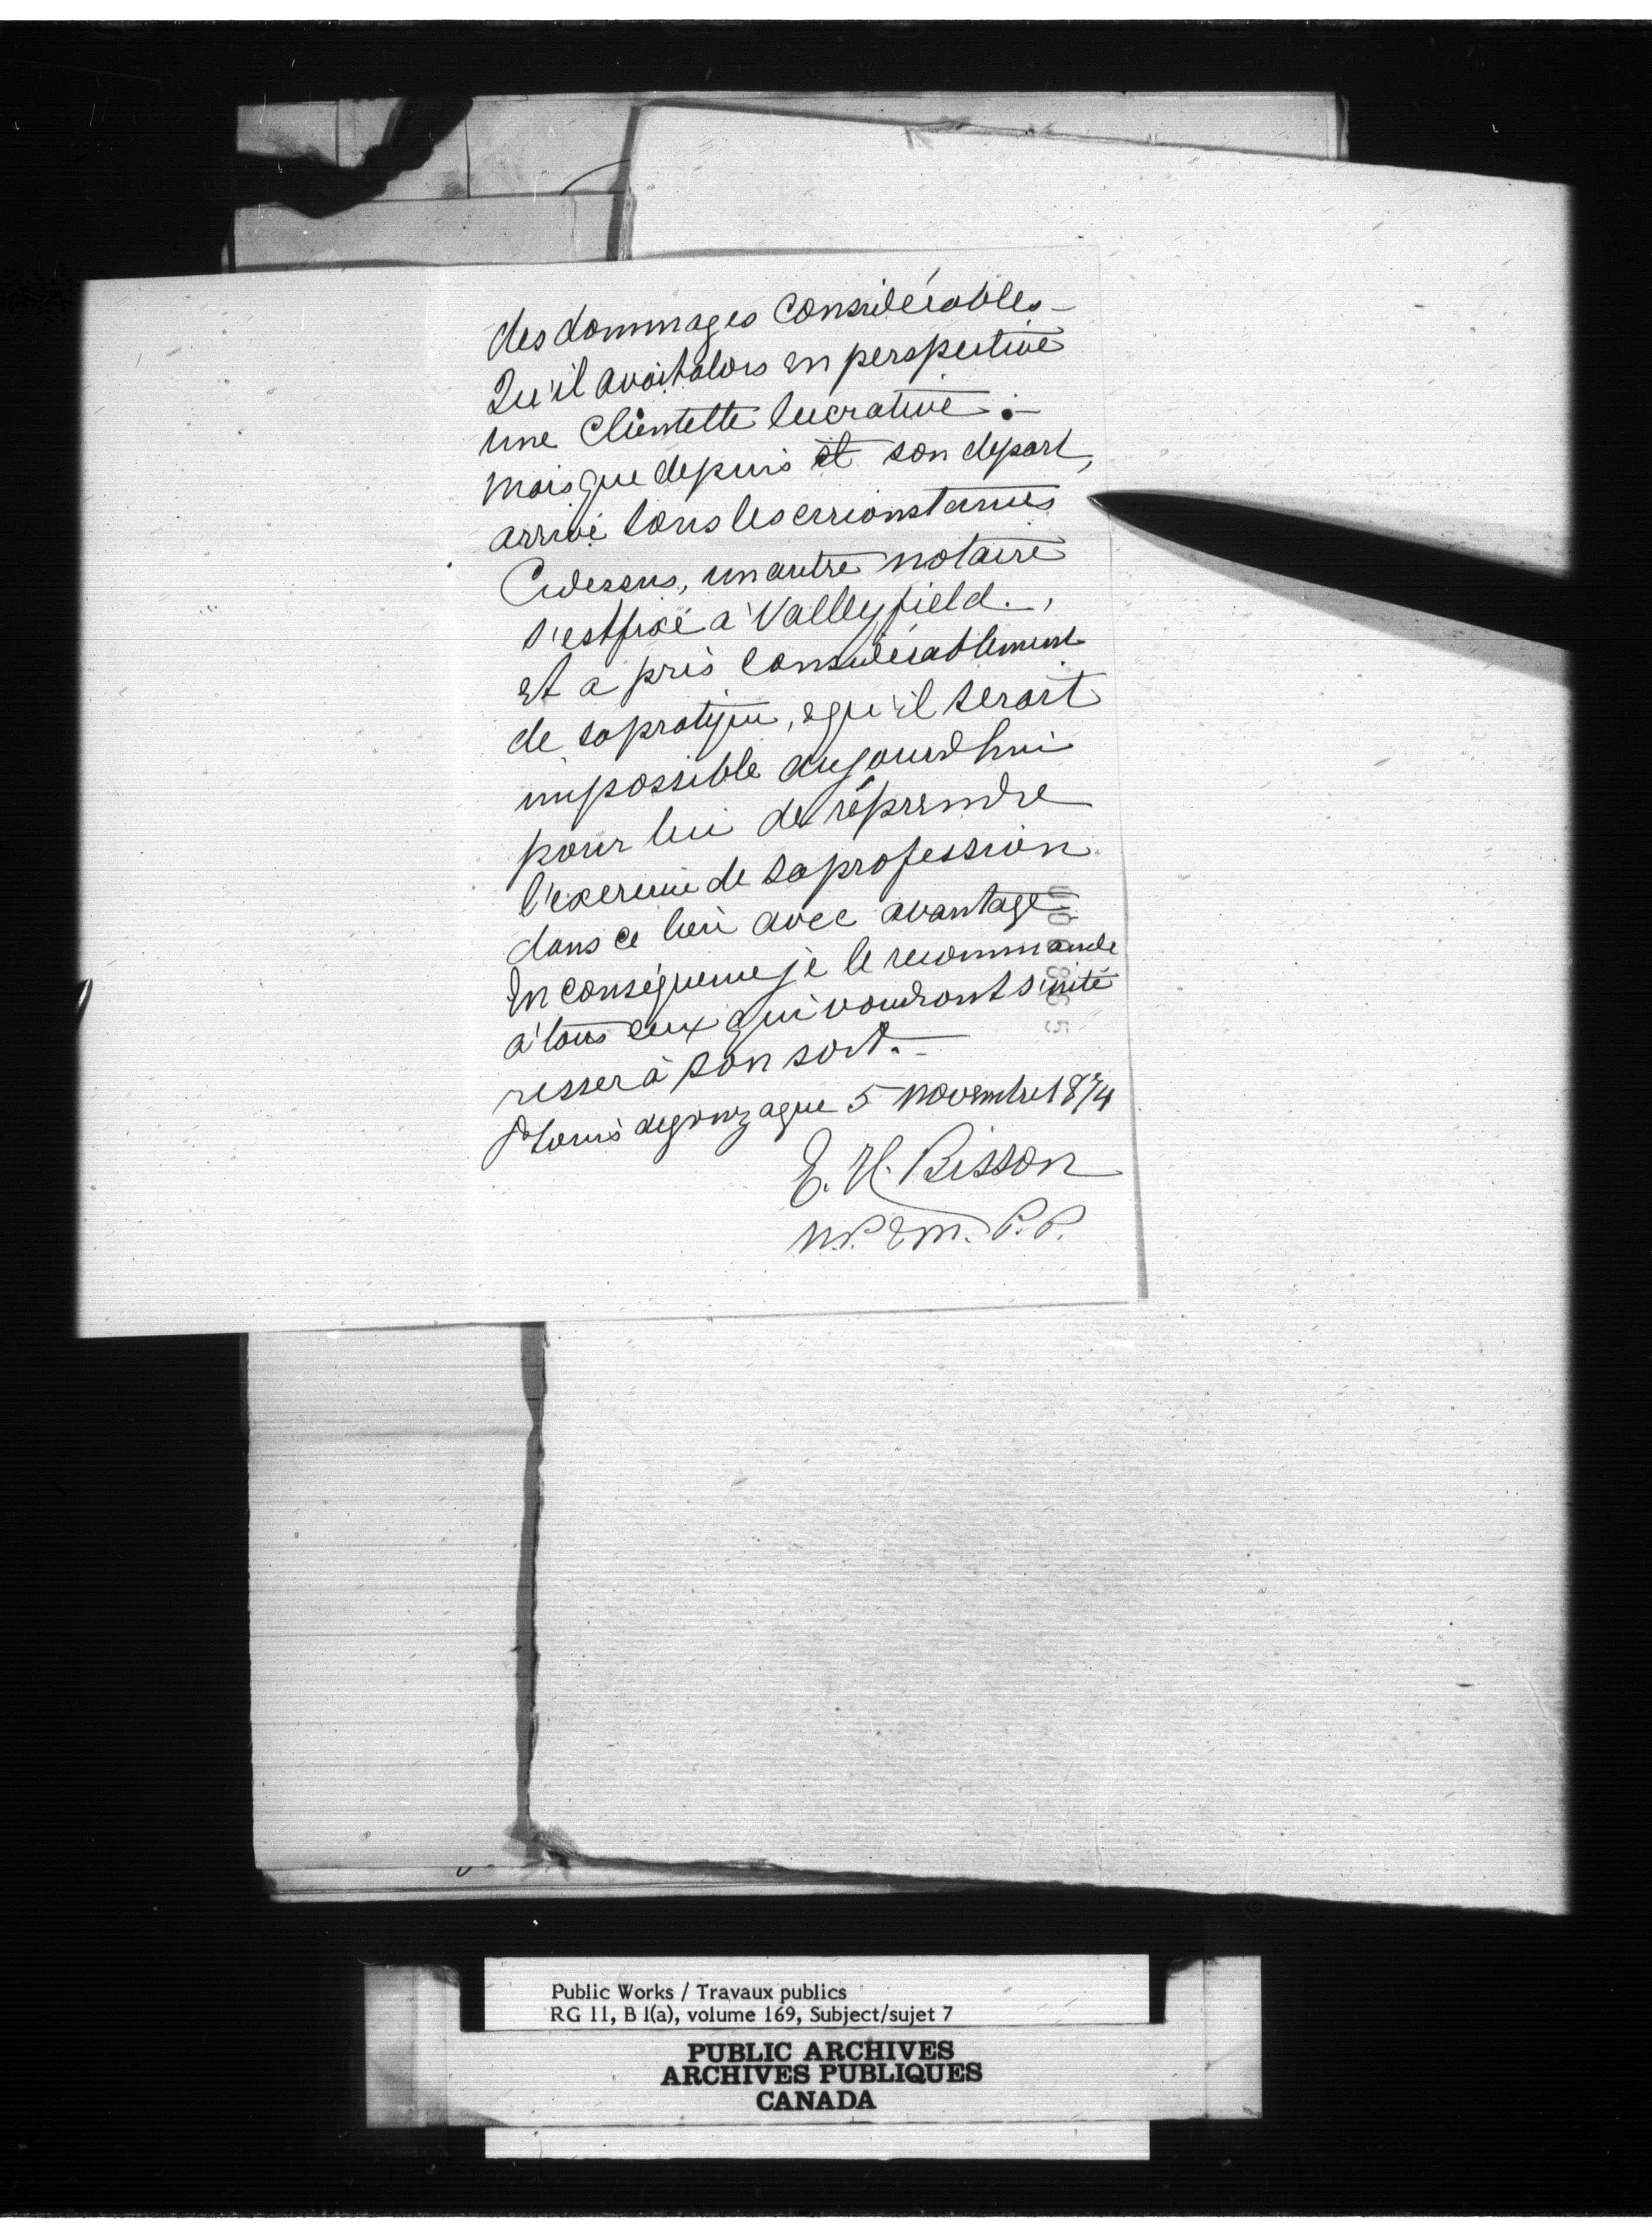 des dommages considérables -
Qu'il avait alors en perspective
une Clientelle lucrative. -
mais que depuis et son depart,
arrivé sous les circonstances
Cidessus, un autre notaire
s'est fixé à Valleyfield.,
et a pris considérablement
de sa pratique, & qu'il serait
impossible aujourdhui
pour lui de réprendre
l'exercice de sa profession
dans ce lieu avec avantage
En conséquence je le recommande
à tous ceux qui voudront s'inté
resser à son sort. -
St Louis de gonzague 5 novembre 1874
E. H. Bisson
N.P. & M. P.P.
Public Works / Travaux publics
RG 11, B 1(a), volume 169, Subject/sujet 7
PUBLIC ARCHIVES
ARCHIVES PUBLIQUES
CANADA